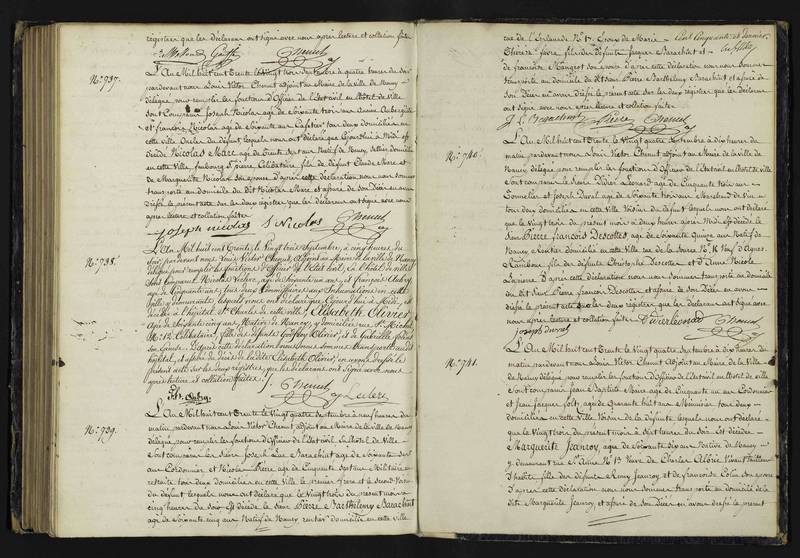 registre que les déclarans ont signé avec nous après lecture et collation faite
N°. 737.
L'An Mil huit cent Trente le Vingt trois Septembre à quatre heures du soir
pardevant nous Louis Victor Chenut adjoint au Maire de la ville de Nancy
délégué pour remplir les fonctions d'Officier de l'Etat civil en l'hôtel de ville
sont Comparus Joseph Nicolas agé de Soixante trois ans
et françois Nicolas agé de Soixante ans Cafetier tous deux domiciliés en
cette ville lesquels nous ont déclaré que aujourd'hui à Midi est
décédé Nicolas Marc agé de Trente Sept ans Natif de Nancy domicilié
en cette ville faubourg St pierre Célibataire fils de défunt Claude Marc et
de Marguerite Nicolas son épouse D'après cette déclaration nous nous sommes
transporté au domicile du dit Nicolas Marc et assuré de son Décès en avons
dressé le présent acte sur les deux registres que les déclarans ont signé avec nous
après lecture et collation faite
Joseph nicolas S Nicolas Chenut
N°. 738.
L'An Mil huit cent Trente, le Vingt trois Septembre, à cinq heures du
soir, par devant nous Louis Victor Chenut, Adjoint au Maire de la ville de Nancy
délégué pour remplir les fonctions d'Officier de l'Etat Civil, en l'hôtel de ville
Sont Comparus Nicolas Leclerc, agé de Soixante un ans, et françois Aubry,
agé de Cinquante ans, tous deux Commissaires aux Inhumations en cette
Ville y demeurants, lesquels nous ont déclaré que Cejourd'hui à Midi, est
décédée à l'hôpital St Charles de cette ville, Elisabeth Olivier
Agée de Soixante cinq ans, Native de Nancy, y domiciliée rue St Michel
Célibataire, fille de défunts Geoffroy Olivier, et de Gabrielle
son Epouse. D'après cette déclaration nous nous sommes transporté audit
hôpital, et assuré du décès de la dite Elisabeth Olivier, en avons dressé le
présent acte sur les deux registres, que les déclarans ont signé avec nous
après lecture et collation faites.
Chenut Leclerc
fs. Aubry.
N°. 739.
L'An Mil huit Cent Trente le Vingt quatre Septembre à neuf heures du
matin pardevant nous Louis Victor Chenut adjoint au Maire de la ville de Nancy
délégué pour remplir les fonctions d'Officier de l'Etat civil en l'hôtel de Ville
sont comparus les Sieurs Joseph Barachin agé de Soixante
ans Cordonnier et Nicolas Pierre agé de Cinquante Sept ans Militaire en
retraite tous deux domiciliés en cette ville le premier frere et le Second Voisin
du défunt lesquels nous ont déclaré que le Vingt trois du présent mois à
cinq heures du Soir est décédé le Sieur Pierre Barthelemy Barachin
agé de Soixante cinq ans Natif de Nancy rentier domicilié en cette ville
rue de l'Esplanade N°. 17.
fils de défunts Jacques Barachin et
de francoise Mangeot son épouse d'après cette déclaration nous nous sommes
transporté au domicile du dit Sieur Pierre Barthelemy Barachin et assuré de
son Décès en avons dressé le présent acte sur les deux registres que les déclarans
ont signé avec nous après lecture et collation faite
Barachin Pierre Chenut
N°. 740.
L'An Mil huit cent Trente le Vingt quatre Septembre à dix heures du
matin pardevant nous Louis Victor Chenut adjoint au Maire de la ville de
Nancy délégué pour remplir les fonctions d'Officier de l'Etat civil en l'hôtel de ville
sont comparus les Sieurs Didier Leonard agé de Cinquante Trois ans
Tonnelier et Joseph Duval agé de Soixante trois ans Marchand de Vin
tous deux domiciliés en cette ville Voisins du défunt lesquels nous ont déclaré
que le Vingt trois du présent mois à deux heures après Midi est décédé le
Sieur Pierre francois Descolles, agé de Soixante Quinze ans Natif de
Nancy rentier domicilié en cette Ville rue de la Source
fils de défunts Christophe Descolles et d'Anne Nicole
D'après cette déclaration nous nous sommes transporté au domicile
du dit Sieur Pierre francois Descolles et assuré de son Décès en avons
dressé le présent acte sur les deux registres que les déclarans ont signé avec
nous après lecture et collation faite Didier leonard Chenut
joseph duval
N°. 741.
L'An Mil huit cent Trente le Vingt quatre Septembre à dix heures du
matin pardevant nous Louis Victor Chenut Adjoint au Maire de la Ville
de Nancy délégué pour remplir les fonctions d'Officier de l'Etat civil en l'hôtel de ville
sont comparus Jean Baptiste Marc agé de Cinquante un ans Cordonnier
et Jean Jacques agé de Quarante huit ans Menuisier tous deux
domiciliés en cette ville Voisins de la défunte lesquels nous ont déclaré
que le Vingt trois du présent mois à Sept heures du Soir est décédée
Marguerite Jeanroy, agée de Soixante dix ans Native de Nancy
y demeurant rue St Anne N°. 13 Veuve de Charles Albiet Vivant tailleur
d'habits fille des défunts Remy Jeanroy, et de francoise Colin Son épouse
D'après cette déclaration nous nous sommes transporté au domicile de la
dite Marguerite Jeanroy, et assuré de son Décès en avons dressé le présent